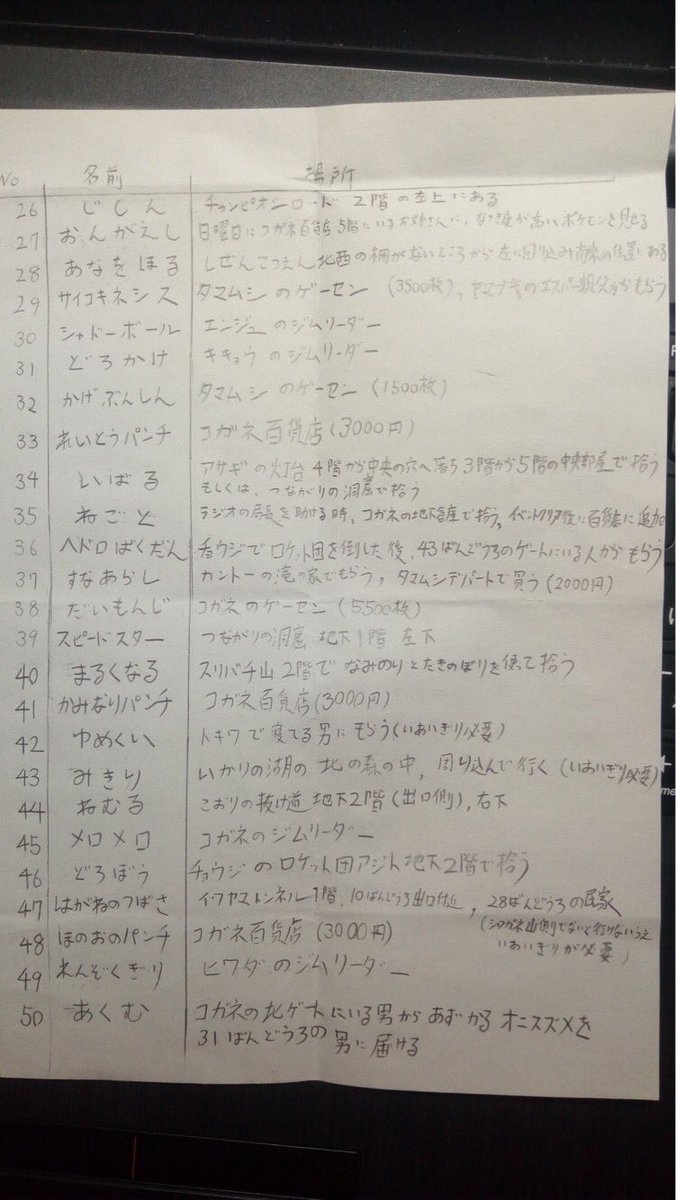 No 名前 場所
26 じしん チャンピオンロード 2階の左上にある
27 おんがえし 日曜日にコガネ百貨店5階にいるお姉さんに、なつき度が高いポケモンを見せる
28 あなをほる しぜんこうえん北西の柵がないところから左に回り込み南東の位置にある
29 サイコキネシス タマムシのゲーセン (3500枚), ヤマブキのエスパー親父からもらう
30 シャドーボール エンジュのジムリーダー
31 どろかけ キキョウのジムリーダー
32 かげぶんしん タマムシのゲーセン (1500枚)
33 れいとうパンチ コガネ百貨店(3000円)
34 いばる アサギの灯台 4階から中央の穴へ落ち3階から5階の中央部屋で拾う
もしくは、つながりの洞窟で拾う
35 ねごと ラジオの局長を助ける時、コガネの地下倉庫で拾う, イベントクリア後に百貨店に追加
36 ヘドロばくだん チョウジでロケット団を倒した後、43ばんどうろのゲートにいる人からもらう
37 すなあらし カントーの滝の家でもらう, タマムシデパートで買う(2000円)
38 だいもんじ コガネのゲーセン(5500枚)
39 スピードスター つながりの洞窟 地下1階 左下
40 まるくなる スリバチ山 2階で なみのりとたきのぼりを使って拾う
41 かみなりパンチ コガネ百貨店(3000円)
42 ゆめくい トキワで寝てる男にもらう(いあいぎり必要)
43 みきり いかりの湖の北の森の中, 周り込んで行く (いあいぎり必要)
44 ねむる こおりの抜け道 地下2階(出口側), 右下
45 メロメロ コガネのジムリーダー
46 どろぼう チョウジのロケット団アジト地下2階で拾う
47 はがねのつばさ イワヤマトンネル1階、10ばんどうろ出口付近, 28ばんどうろの民家
(シロガネ山側でないと行けないうえ
いあいぎりが必要)
48 ほのおのパンチ コガネ百貨店 (3000円)
49 れんぞくぎり ヒワダのジムリーダー
50 あくむ コガネの北ゲートにいる男からあずかるオニスズメを
31ばんどうろの男に届ける